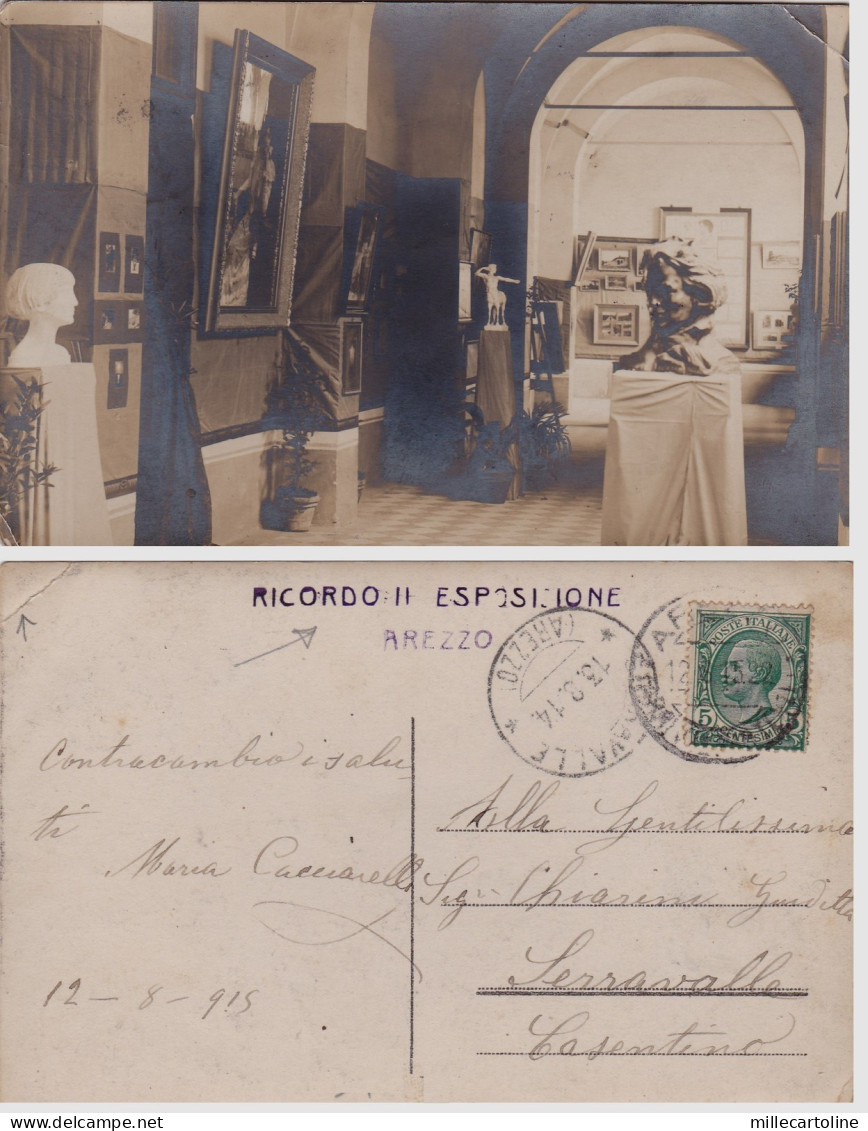 RICORDO II ESPOSIZIONE
AREZZO
(AREZZO)
13.8.14
POSTE ITALIANE
5
CENTESIMI
Contracambio i salu-
ti
Maria Cacciarelli
12 - 8 - 915
Alla Gentilissima
Sig. Chiarini Giuditta
Serravalle
Casentino
millecartoline